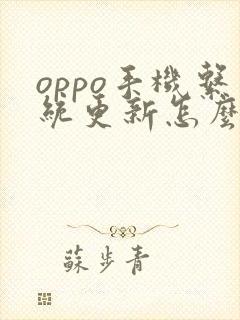 oppo手機繫
統更新怎麽
蘇步青